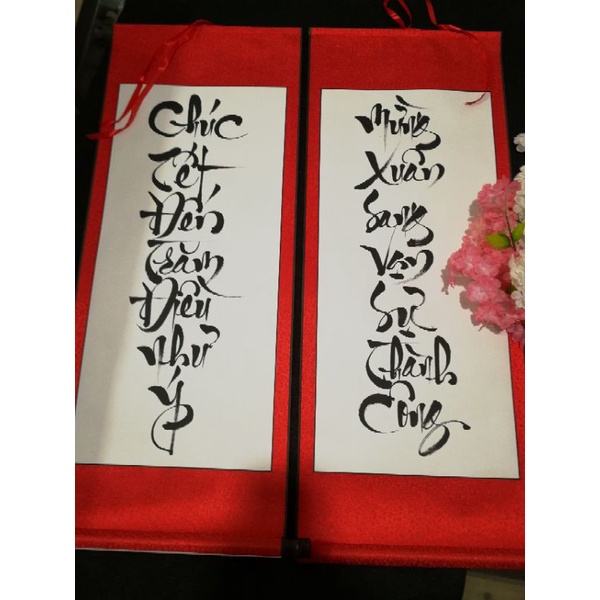 Chúc
Tết
Đến
Trăm
Điều
như
ý
Mừng
Xuân
Sang
Vạn
Sự
Thành
Công